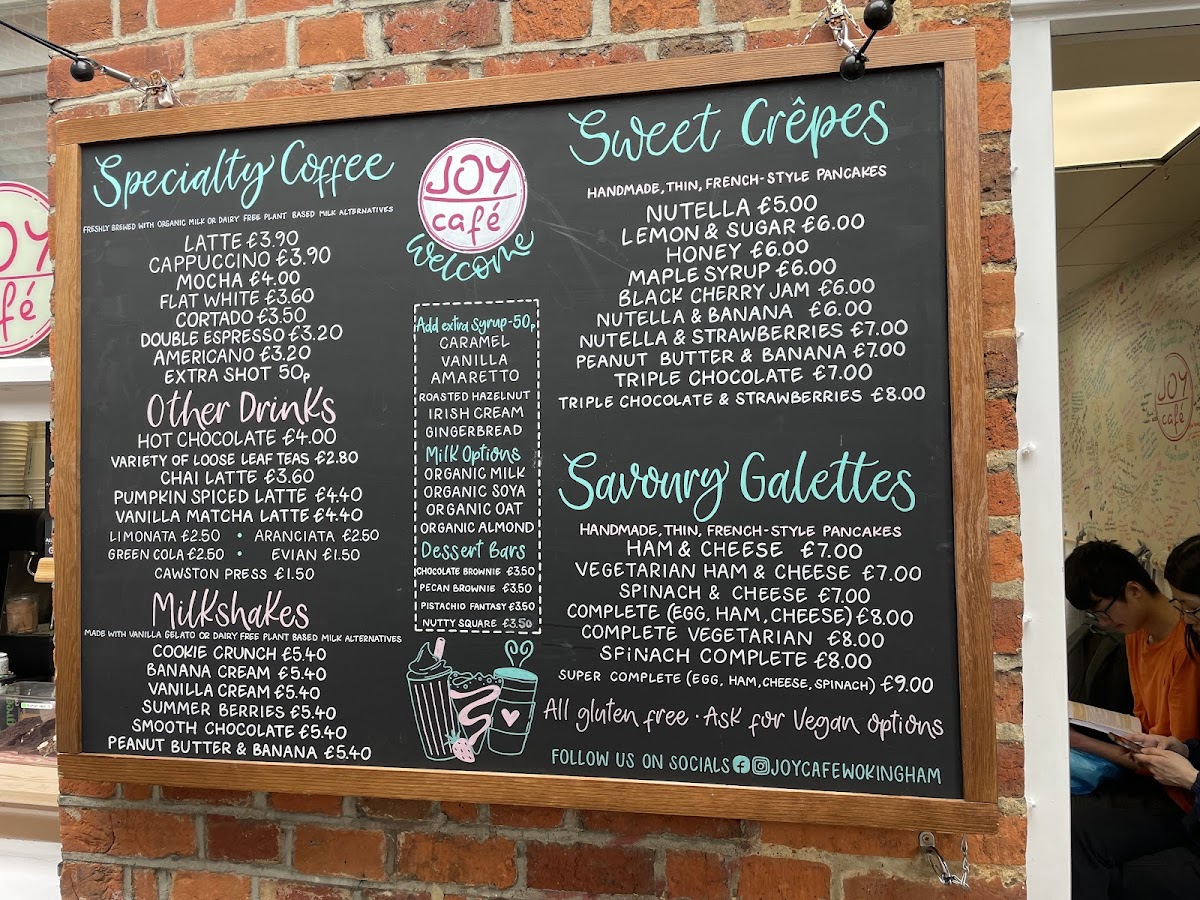 Specialty Coffee
FRESHLY BREWED WITH ORGANIC MILK OR DAIRY FREE PLANT BASED MILK ALTERNATIVES
LATTE £3.90
CAPPUCCINO £3.90
MOCHA £4.00
FLAT WHITE £3.60
CORTADO £3.50
DOUBLE ESPRESSO £3.20
AMERICANO £3.20
EXTRA SHOT 50p
Other Drinks
HOT CHOCOLATE £4.00
VARIETY OF LOOSE LEAF TEAS £2.80
CHAI LATTE £3.60
PUMPKIN SPICED LATTE £4.40
VANILLA MATCHA LATTE £4.40
LIMONATA £2.50 • ARANCIATA £2.50
GREEN COLA £2.50 • EVIAN £1.50
CAWSTON PRESS £1.50
Milkshakes
MADE WITH VANILLA GELATO OR DAIRY FREE PLANT BASED MILK ALTERNATIVES
COOKIE CRUNCH £5.40
BANANA CREAM £5.40
VANILLA CREAM £5.40
SUMMER BERRIES £5.40
SMOOTH CHOCOLATE £5.40
PEANUT BUTTER & BANANA £5.40
JOY
café
Welcome
Add extra syrup-50p
CARAMEL
VANILLA
AMARETTO
ROASTED HAZELNUT
IRISH CREAM
GINGERBREAD
Milk Options
ORGANIC MILK
ORGANIC SOYA
ORGANIC OAT
ORGANIC ALMOND
Dessert Bars
CHOCOLATE BROWNIE £3.50
PECAN BROWNIE £3.50
PISTACHIO FANTASY £3.50
NUTTY SQUARE £3.50
Sweet Crêpes
HANDMADE, THIN, FRENCH-STYLE PANCAKES
NUTELLA £5.00
LEMON & SUGAR £6.00
HONEY £6.00
MAPLE SYRUP £6.00
BLACK CHERRY JAM £6.00
NUTELLA & BANANA £6.00
NUTELLA & STRAWBERRIES £7.00
PEANUT BUTTER & BANANA £7.00
TRIPLE CHOCOLATE £7.00
TRIPLE CHOCOLATE & STRAWBERRIES £8.00
Savoury Galettes
HANDMADE, THIN, FRENCH-STYLE PANCAKES
HAM & CHEESE £7.00
VEGETARIAN HAM & CHEESE £7.00
SPINACH & CHEESE £7.00
COMPLETE (EGG, HAM, CHEESE) £8.00
COMPLETE VEGETARIAN £8.00
SPINACH COMPLETE £8.00
SUPER COMPLETE (EGG, HAM, CHEESE, SPINACH) £9.00
All gluten free · Ask for Vegan options
FOLLOW US ON SOCIALS JOYCAFEWOKINGHAM
JOY
café
JOY
café